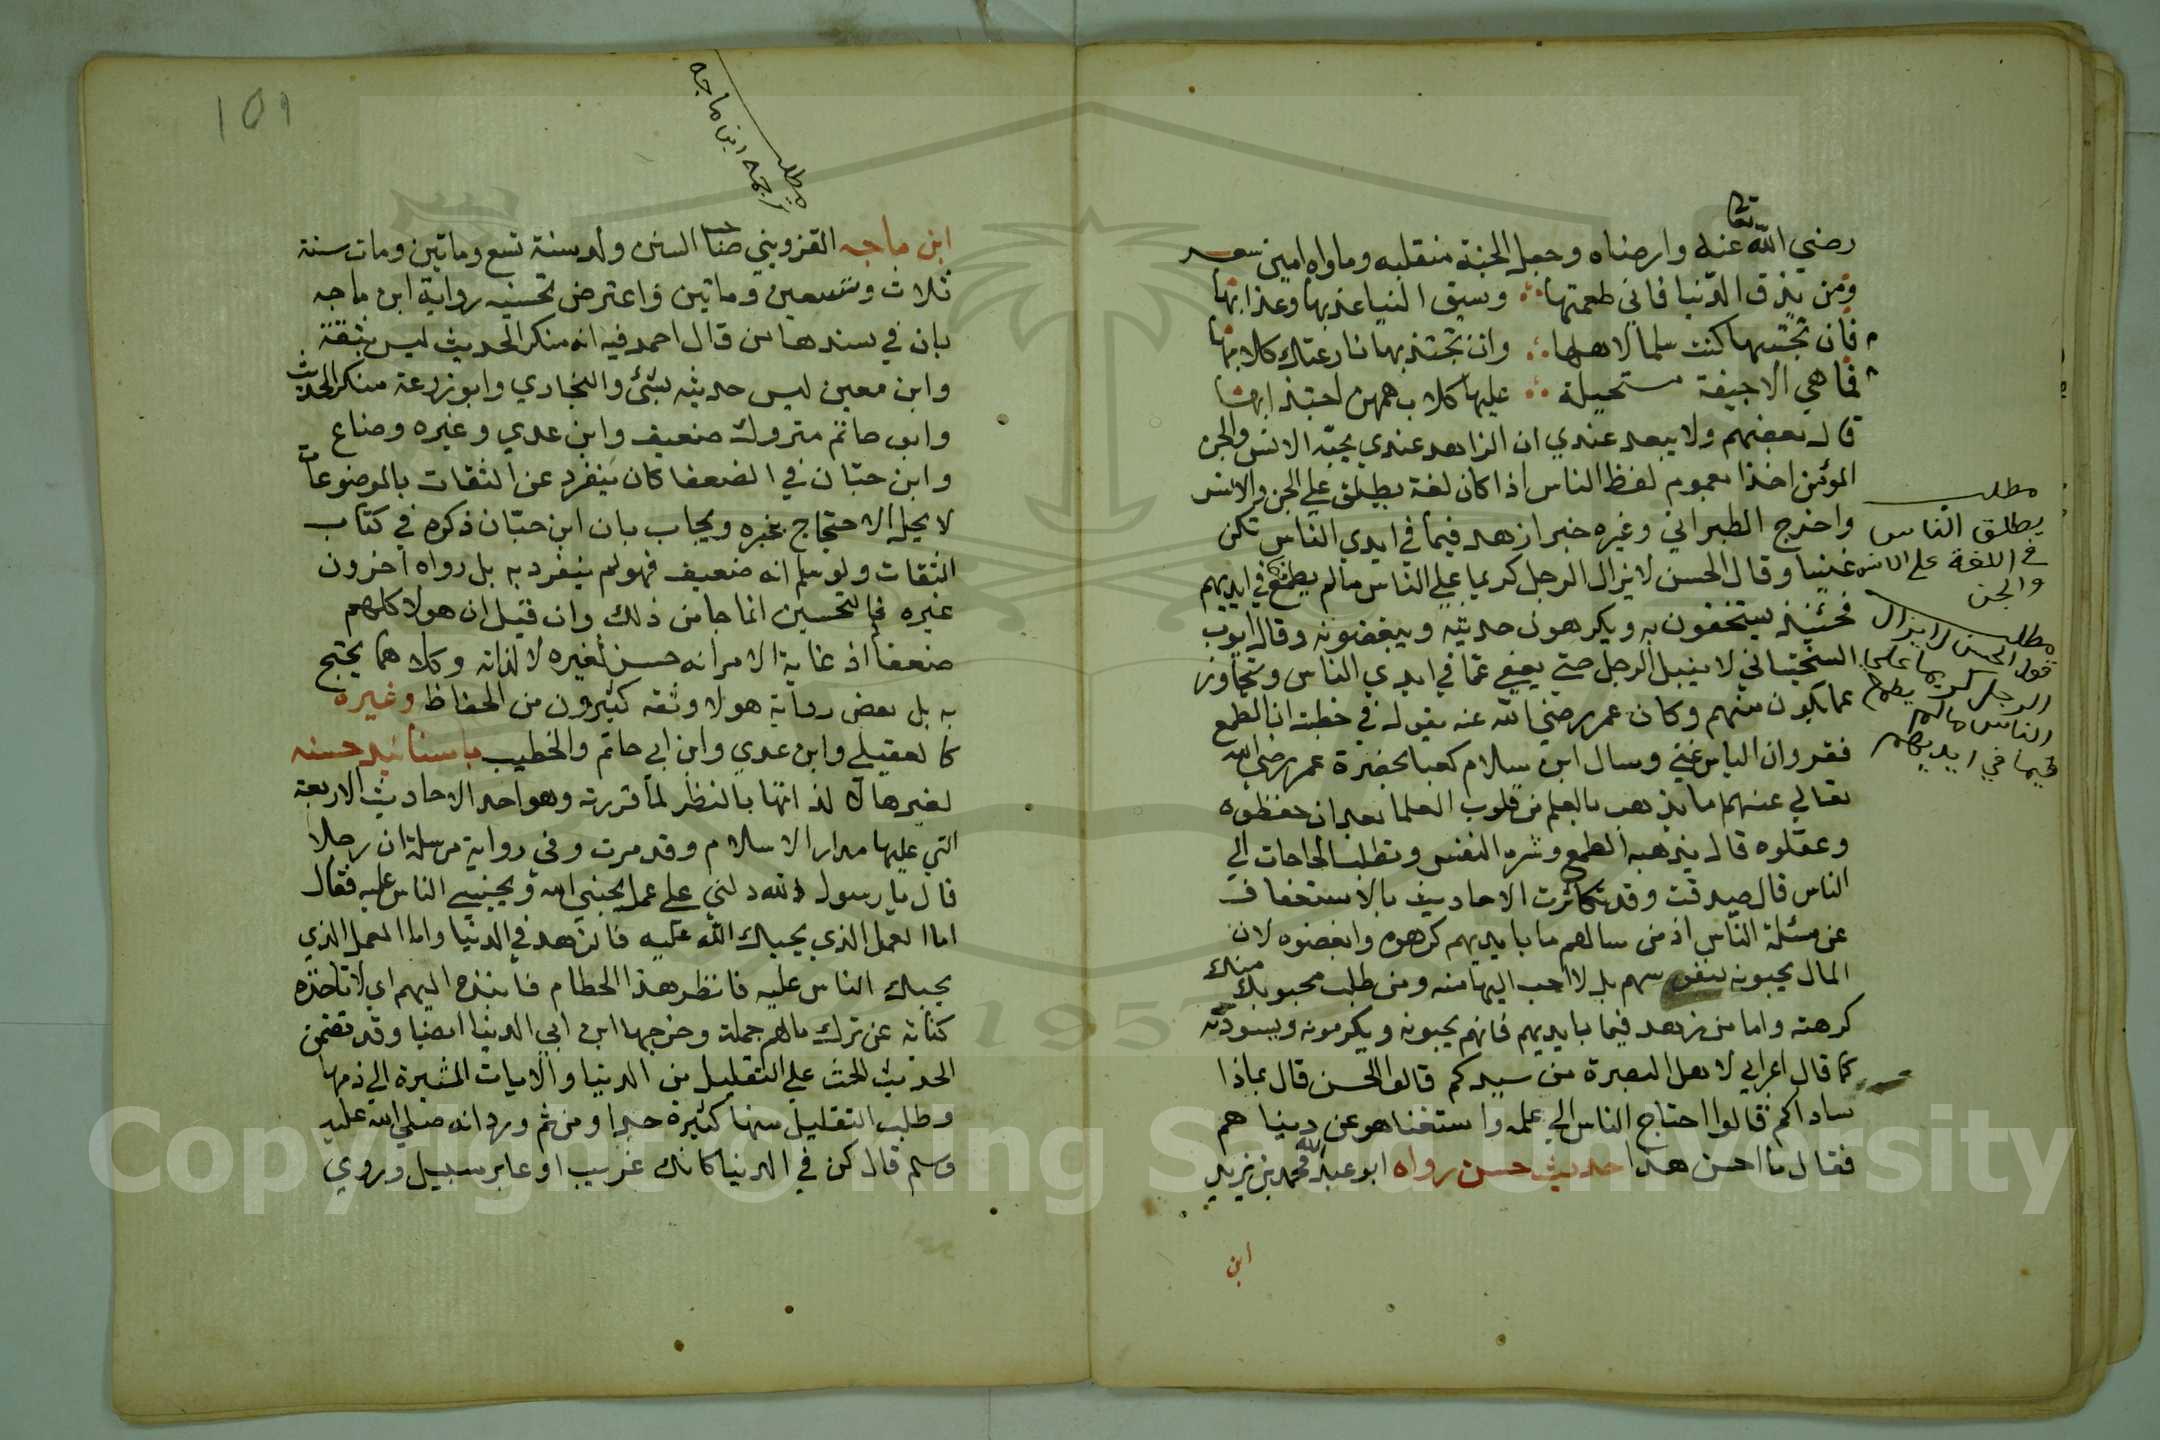 رضي الله تعا عنه وارضاه وجعل الجنة منقلبه وماواه امين شعر
ومن يذق الدنيا فاني طعمتها ؞ وسيق الينا عذبها وعذابها
فان تجتنبها كنت سلما لاهلها ؞ وان تجتذبها نازعتك كلابها
فما هي الا جيفة مستحيلة ؞ عليها كلاب همهن اجتذابها
قال بعضهم ولا يبعد عندي ان الزاهد عندي يحبه الانس والجن
المؤمن اخذا بعموم لفظ الناس اذا كان لغة يطلق علي الجن والانس
واخرج الطبراني وغيره خبر ازهد فيما في ايدي الناس تكن
غنيا وقال الحسن لا يزال الرجل كريما علي الناس ما لم يطمع في ايديهم
فحينئذ يستخفون به ويكرهون حديثه ويبغضونه وقال ايوب
السختياني لا ينبل الرجل حتي يعف عما في ايدي الناس ويتجاوز
عما يكون منهم وكان عمر رضي الله عنه يقول في خطبته ان الطمع
فقر وان الياس غني وسال ابن سلام كعبا بحضرة عمر رضي الله
تعالي عنهما ما يذهب بالعلم من قلوب العلما بعد ان حفظوه
وعقلوه قال يذهبه الطمع وشره النفس وتطلب الحاجات الي
الناس قال صدقت وقد تكاثرت الاحاديث بالاستعفاف
عن مسئلة الناس اذ من سالهم ما بايديهم كرهوه وابغضوه لان
المال يحبونه نفوسهم بل لا احب اليها منه ومن طلب محبوبك منك
كرهته واما من زهد فيما بايديهم فانهم يحبونه ويكرمونه ويسودنه
كما قال اعرابي لاهل البصرة من سيدكم قالوا الحسن قال بماذا
سادكم قالوا احتاج الناس الي علمه واستغنا هو عن دنياهم
فقال ما احسن هذا حديث حسن رواه ابو عبد الله محمد بن يزيد
ابن
مطلب
يطلق الناس
في اللغة علي الانس
والجن
مطلب
قول الحسن لا يزال
الرجل كريما علي
الناس ما لم يطمع
فيما في ايديهم
١٥٩
مطلب
ترجمة ابن ماجه
ابن ماجه القزويني صاحب السنن ولد سنة تسع وماتين ومات سنة
ثلاث وسبعين وماتين واعترض تحسنيه رواية ابن ماجه
بان في سندها من قال احمد فيه انه منكر الحديث ليس بثقة
وابن معين ليس حديثه بشئ والبخاري وابو زرعة منكر الحديث
وابو حاتم متروك ضعيف وابن عدي وغيره وضاع
وابن حبان في الضعفا كان ينفرد عن الثقات بالموضوعات
لا يحل الاحتجاج بخبره ويجاب بان ابن حبان ذكره في كتاب
الثقات ولو سلم انه ضعيف فهو لم ينفرد به بل رواه اخرون
غيره فالتحسين انما جا من ذلك وان قيل ان هولا كلهم
ضعفا اذ غاية الامر انه حسن لغيره لا لذاته وكلاهما يحتج
به بل بعض رواية هولا وثقه كثيرون من الحفاظ وغيره
كالعقيلي وابن عدي وابن ابي حاتم والخطيب باسانيد حسنه
لغيرها لا لذاتها بالنظر لما قررته وهو احد الاحاديث الاربعة
التي عليها مدار الاسلام وقد مرت وفي رواية مرسلة ان رجلا
قال يا رسول الله دلني علي عمل يحبني الله ويحببني الناس عليه فقال
اما العمل الذي يحبك الله عليه فالزهد في الدنيا واما العمل الذي
يحبك الناس عليه فانظر هذا الحطام فانبذه اليهم اي لا تاخذه
كناية عن ترك مالهم جملة وخرجها ابن ابي الدنيا ايضا وقد تضمن
الحديث الحث علي التقليل من الدنيا والايات المشيرة الي ذمها
وطلب التقليل منها كثيرة جدا ومن ثم ورد انه صلي الله عليه
وسلم قال كن في الدنيا كانك غريب او عابر سبيل وروي
1957
Copyright © King Saud University